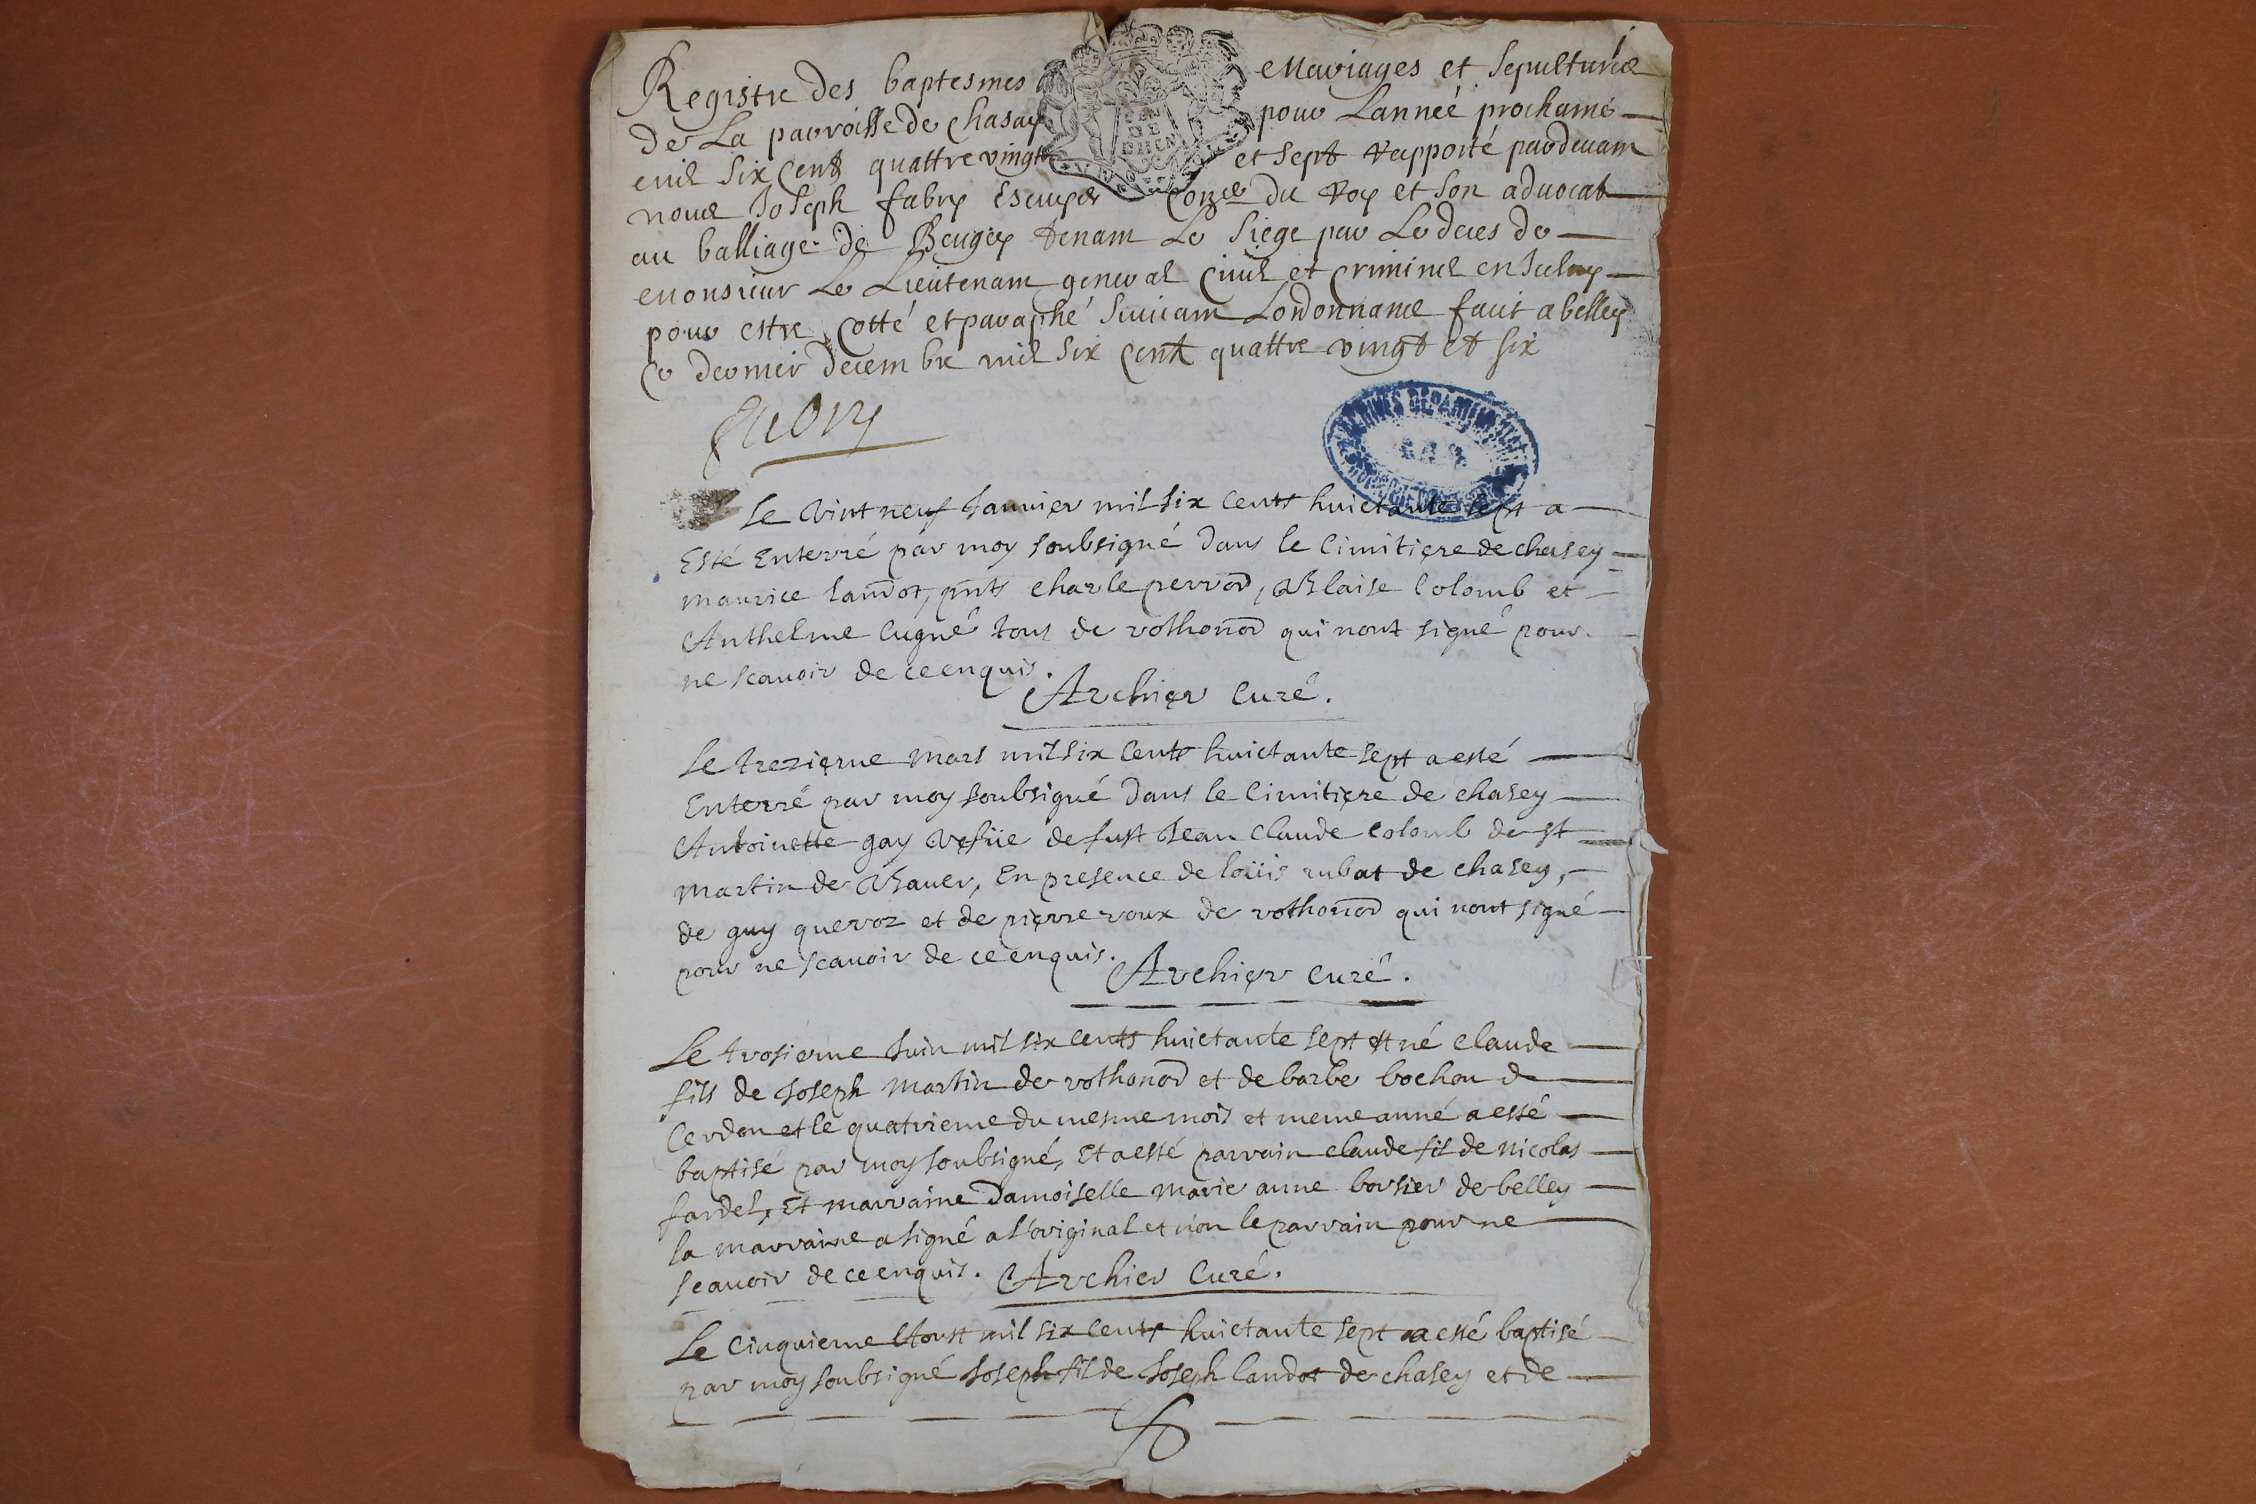 1
Registre des baptesmes Mariages et sepultures
de La parroisse de Chasay pour Lanneé prochaine
mil six cents quattre vingts et sept rapporté pardevant
nous Joseph fabry Escuyer Con.er du roy et son advocat
au balliage de Beugey tenant Le siege par Le deces de
monsieur Le Lieutenant general civil et criminel
pour estre cotté et paraphé suivant Lordonnance fait a belley
Ce dernier decembre mil six cents quattre vingt et six
fabry
ARCHIVES DEPARTEMENTALES
GEN DE BRES
Le vint neuf Janvier mil six cents huictante sept a
Esté Enterré par moy soubsigné dans le Cimitiere de chasey
Maurice landot, pnts charle perrod, Blaise Colomb et
Anthelme Cugné tous de vothonod qui nont signé pour
ne scavoir de ce enquis.
Archier Curé.
Le trezieme Mars mil six Cents huictante sept a esté
Enterré par moy soubsigné dans le Cimitiere de chasey
Antoinette gay vefüe de fust Jean Claude Colomb de st
Martin de Bavez, En presence de loüis rubat de chasey,
de guy queroz et de pierre roux de vothonod qui nont signé
pour ne scavoir de ce enquis.
Archier Curé.
Le trosieme Juin mil six cents huictante sept est né claude
fils de Joseph Martin de vothonod et de barbe bochon de
Cerdon et le quatrieme du mesme mois et meme anné a esté
baptisé par moy soubsigné, Et a esté parrain claude fil de nicolas
fardel, Et marraine Damoiselle Marie anne borsier de belley
la marraine a signé a l'original et non le parrain pour ne
scavoir de ce enquis. Archier Curé.
Le Cinquieme Aoust mil six cents huictante sept a esté baptisé
par moy soubsigné Joseph fil de Joseph landot de chasey et de